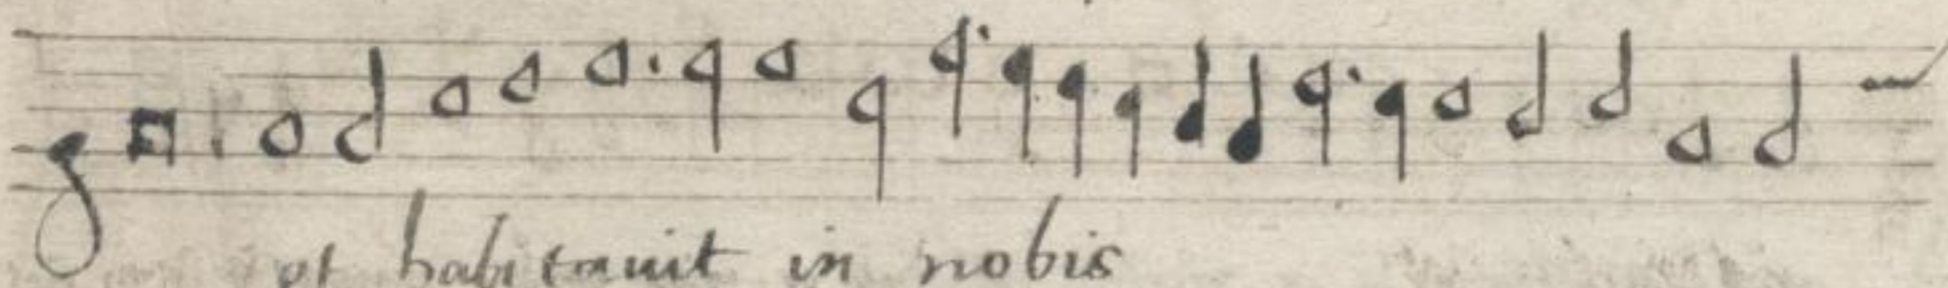 et habitauit in nobis